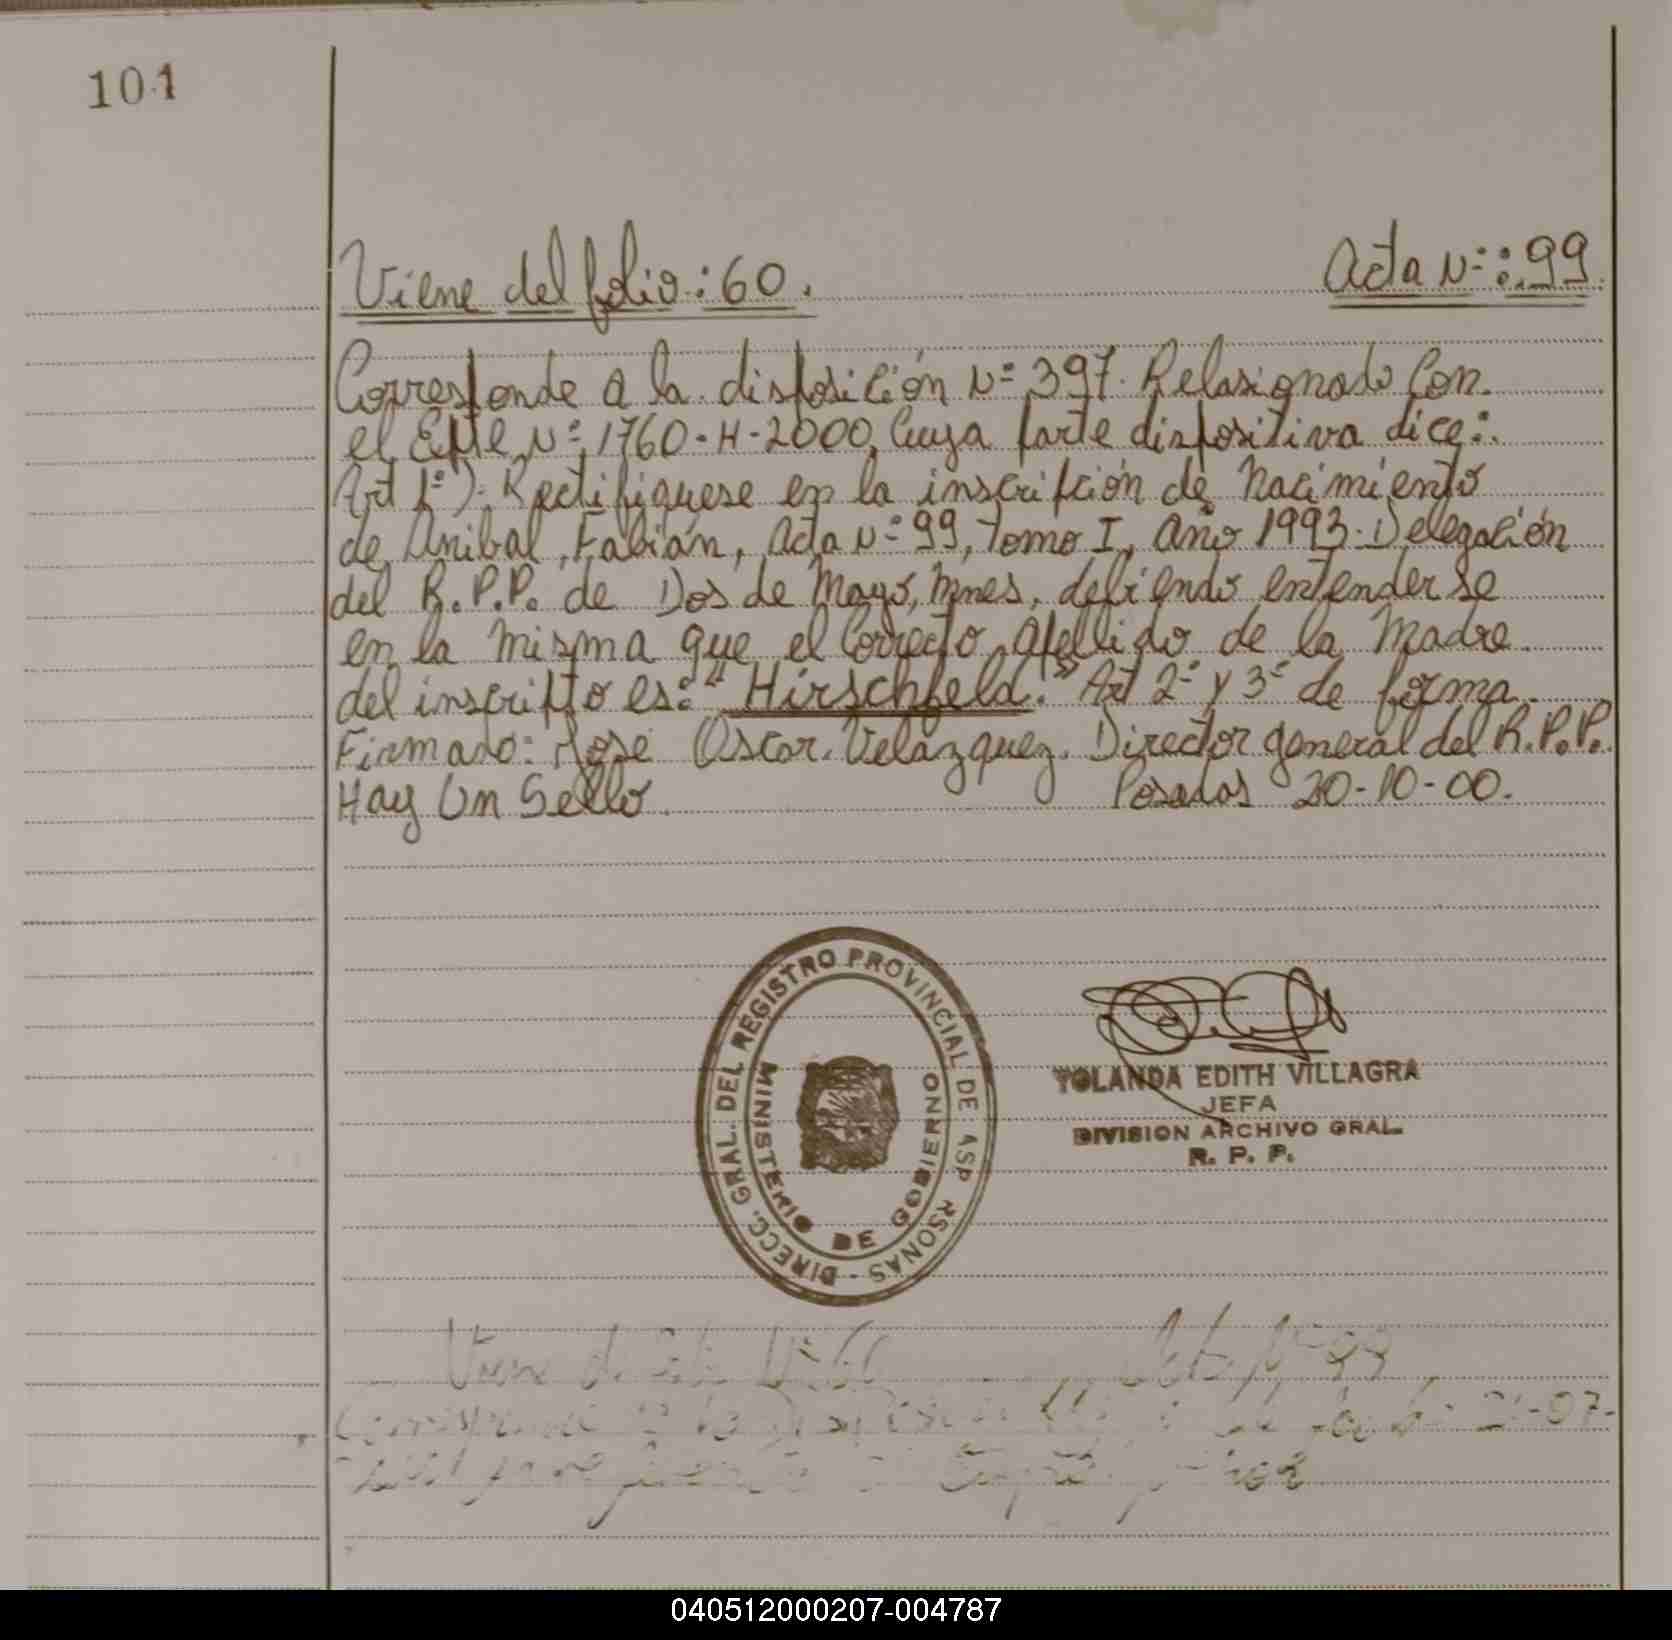 101
Viene del folio: 60. Acta Nº: 99.
Corresponde a la disposición Nº 397. Relasionado Con.
el Expte Nº 1760-H-2000, Cuya parte dispositiva dice:.
Art 1º). Rectifiquese en la inscripción de Nacimiento
de Anibal, Fabián, Acta Nº 99, Tomo I, Año 1993. Delegación
del R.P.P. de Dos de Mayo, Mnes, debiendo entenderse
en la misma que el Correcto apellido de la Madre.
del inscripto es: "Hirschfeld." Art 2º y 3º de forma.
Firmado: Jose Oscar. Velazquez. Director general del R.P.P.
Hay Un Sello. Posadas 20-10-00.
DIRECC. GRAL. DEL REGISTRO PROVINCIAL DE ASP RSONAS -
MINISTERIO DE GOBIERNO
YOLANDA EDITH VILLAGRA
JEFA
DIVISION ARCHIVO GRAL.
R. P. P.
Viene Acta Nº 99
Corresponde a la
040512000207-004787